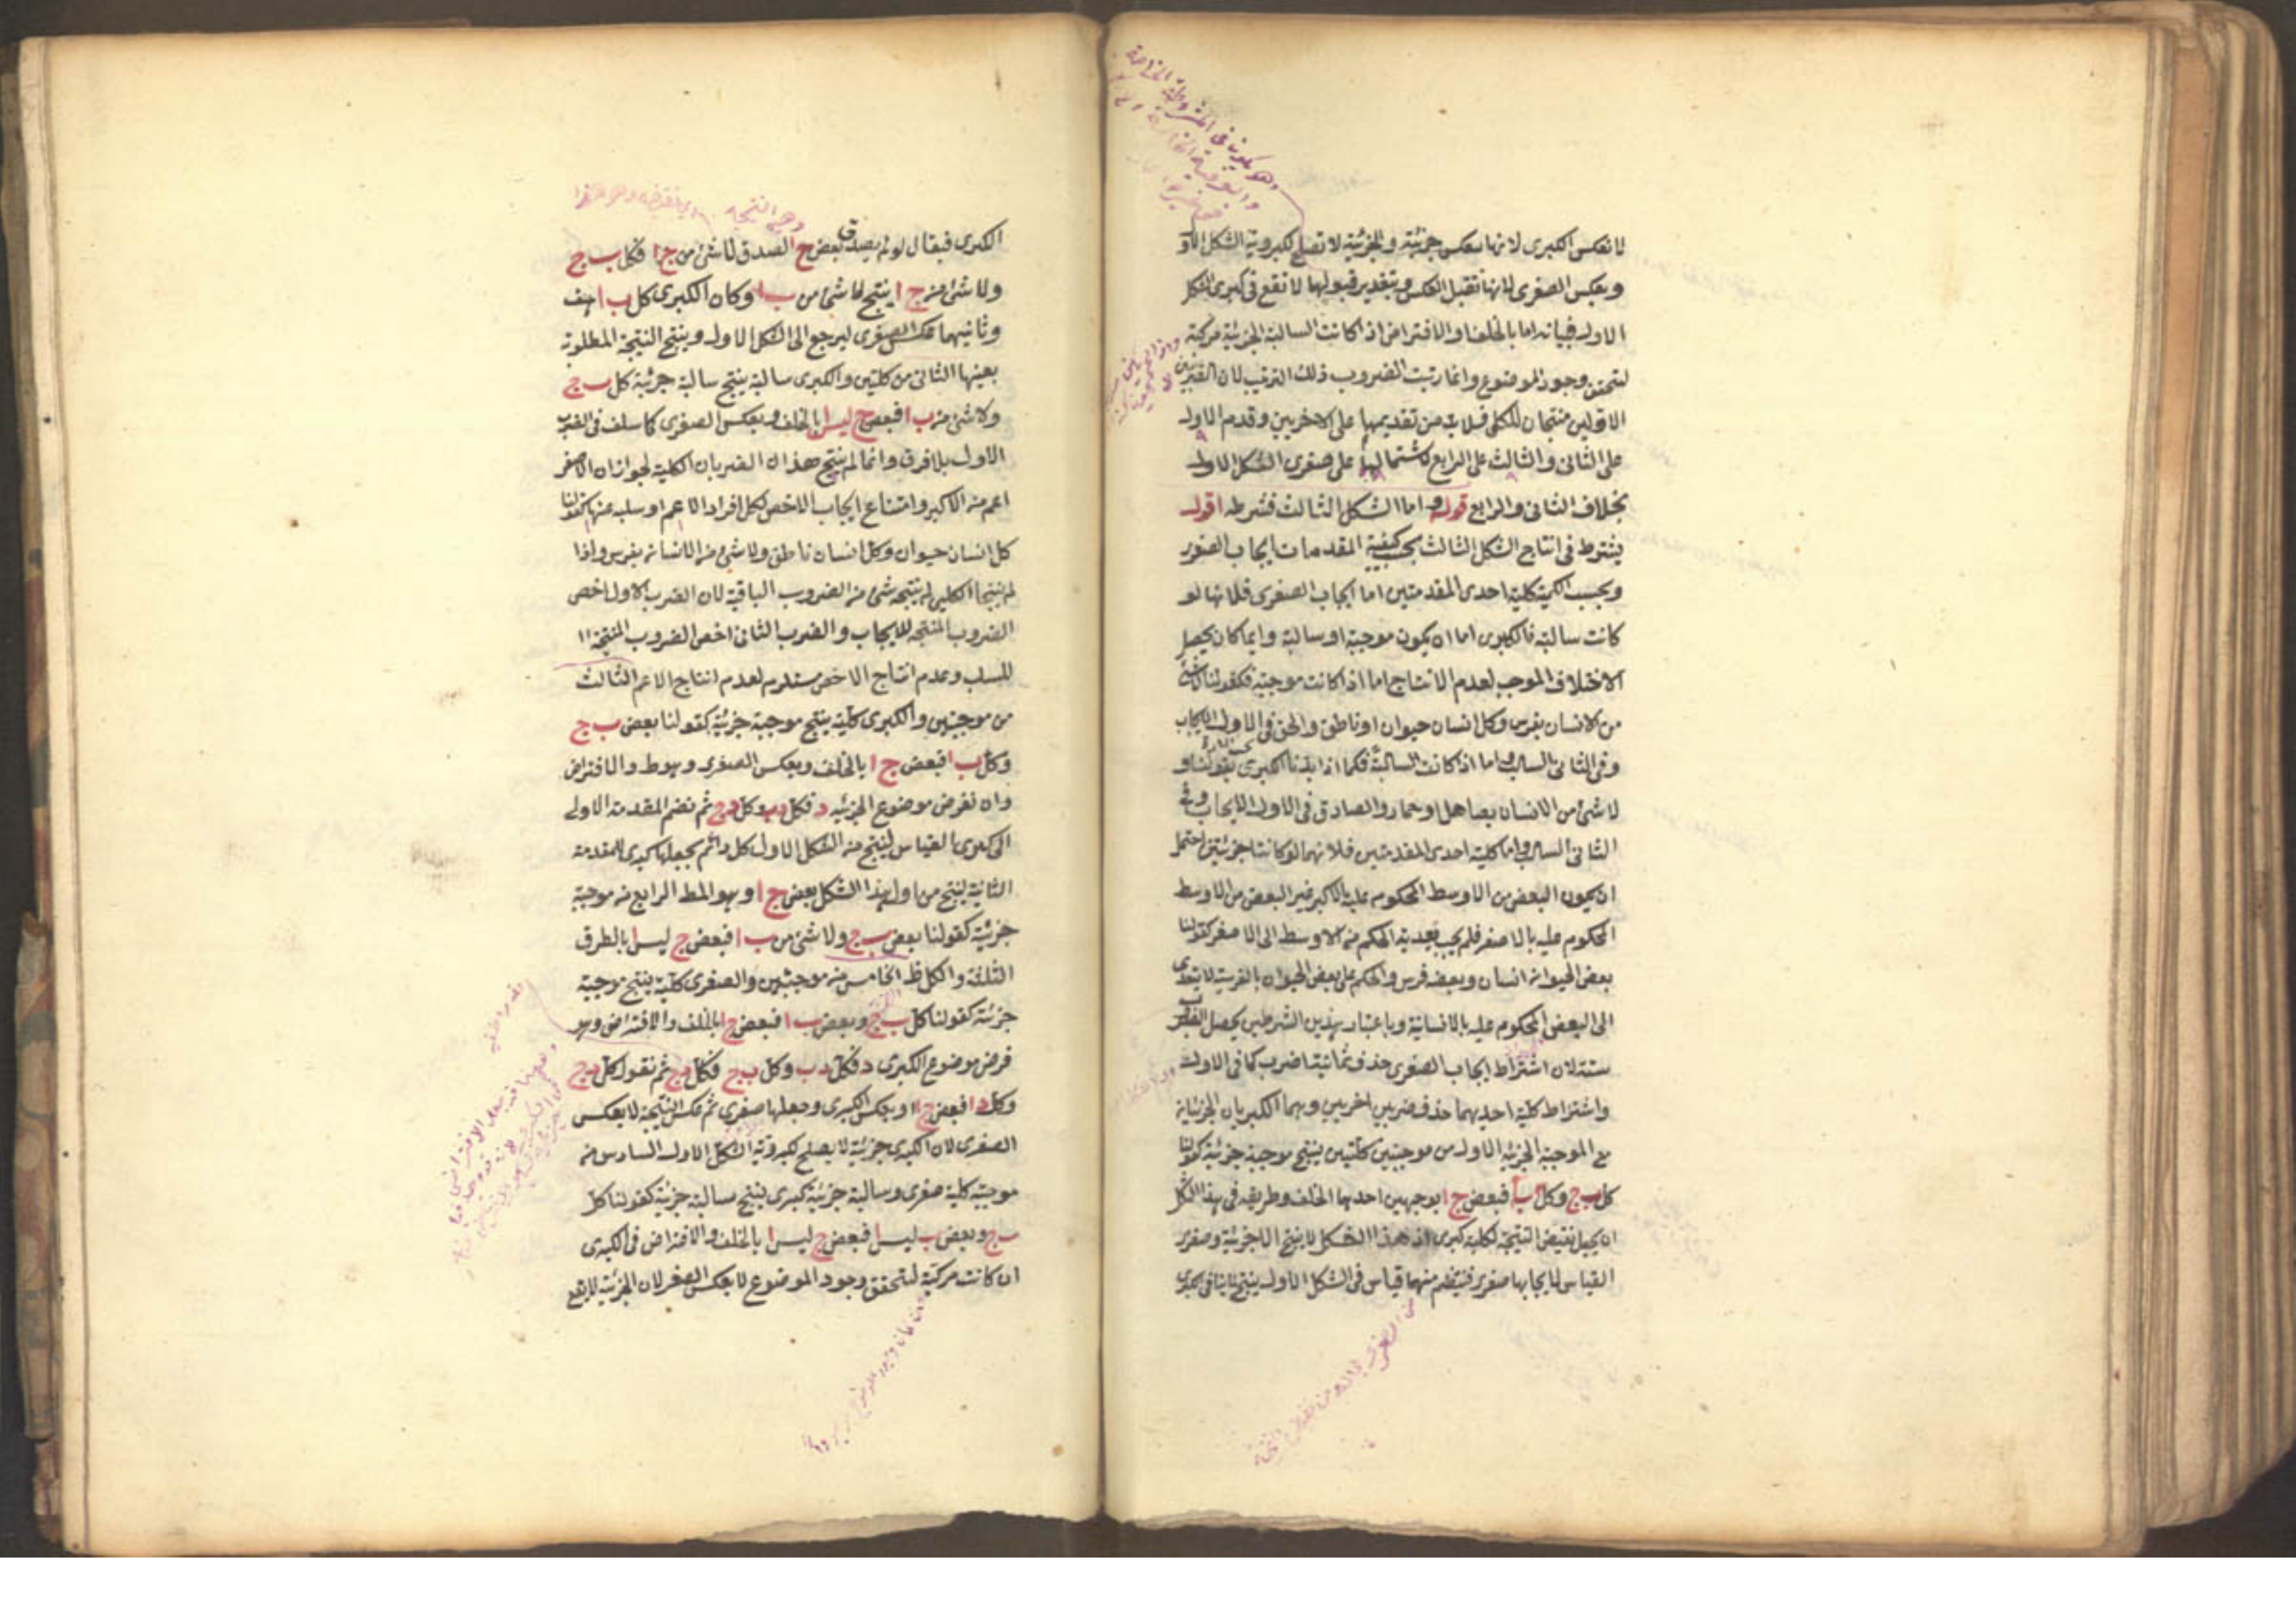 لا بعكس الكبرى لانها تنعكس جزئية والجزئية لا تصلح لكبروية الشكل الاو
وبعكس الصغرى لانها تقبل العكس وبتقدير قبولها لا تقع في كبرى الشكل
الاول فبيانه اما بالخلف او الافتراض اذا كانت السالبة الجزئية مركبة
لتحقق وجود الموضوع وانما رتبت الضروب ذلك الترتيب لان الضربين
الاولين منتجان للكلي فلا بد من تقديمهما على الاخريين وقدم الاول
على الثاني والثالث على الرابع لاشتمالهما على صغرى الشكل الاول
بخلاف الثاني والرابع قوله واما الشكل الثالث فشرطه اقول
يشترط في انتاج الشكل الثالث بحسب كيفية المقدمات ايجاب الصغرى
وبحسب الكمية كلية احدى المقدمتين اما ايجاب الصغرى فلانها لو
كانت سالبة فالكبرى اما ان يكون موجبة او سالبة وايما كان يحصل
الاختلاف الموجب لعدم الانتاج اما اذا كانت موجبة فكقولنا لا شئ
من الانسان بفرس وكل انسان حيوان او ناطق والحق في الاول الايجاب
وفي الثاني السلب واما اذا كانت السالبة فكما اذا بدلنا الكبرى بقولنا
لا شئ من الانسان بصاهل او حمار والصادق في الاول الايجاب وفي
الثاني السلب واما كلية احدى المقدمتين فلانهما لو كانتا جزئيتين احتمل
ان يكون البعض من الاوسط المحكوم عليه بالاكبر غير البعض من الاوسط
المحكوم عليه بالاصغر فلم يجب تعدية الحكم من الاوسط الى الاصغر كقولنا
بعض الحيوان انسان وبعضه فرس والحكم على بعض الحيوان بالفرسية لا يتعدى
الى البعض المحكوم عليه بالانسانية وباعتبار هذين الشرطين يحصل الضرب
ستة لان اشتراط ايجاب الصغرى حذف ثمانية اضرب كما في الاول
واشتراط كلية احديهما حذف ضربين اخريين وهما الكبريان الجزئيتان
مع الموجبة الجزئية الاول من موجبتين كليتين ينتج موجبة جزئية كقولنا
كل ب ج وكل ب ا فبعض ج ا بوجهين احدهما الخلف وطريقه في هذا الشكل
ان يجعل نقيض النتيجة لكليته كبرى اذ هذا الشكل لا ينتج الا جزئية وصغرى
القياس لايجابها صغرى فينتظم منهما قياس في الشكل الاول ينتج لما ينافي الكبرى
الكبرى فيقال لو لم يصدق بعض ج ا لصدق لا شئ من ج ا فكل ب ج
ولا شئ من ج ا ينتج لا شئ من ب ا وكان الكبرى كل ب ا هف
وثانيهما عكس الصغرى ليرجع الى الشكل الاول وينتج النتيجة المطلوبة
بعينها الثاني من كليتين والكبرى سالبة ينتج سالبة جزئية كل ب ج
ولا شئ من ب ا فبعض ج ليس ا بالخلف وبعكس الصغرى كما سلف في الضرب
الاول بلا فرق وانما لم ينتج هذان الضربان الكلية لجواز ان الاصغر
اعم من الاكبر وامتناع ايجاب الاخص لكل افراد الاعم او سلبه عنها كقولنا
كل انسان حيوان وكل انسان ناطق ولا شئ من الانسان بفرس واذا
لم ينتجا الكلي لم ينتجه شئ من الضروب الباقية لان الضرب الاول اخص
الضروب المنتجة للايجاب والضرب الثاني اخص الضروب المنتجة
للسلب وعدم انتاج الاخص مستلزم لعدم انتاج الاعم الثالث
من موجبتين والكبرى كلية ينتج موجبة جزئية كقولنا بعض ب ج
وكل ب ا فبعض ج ا بالخلف وبعكس الصغرى وهو ط والافتراض
وان نفرض موضوع الجزئية د فكل د ب وكل د ج ثم نضم المقدمة الاولى
الى كبرى القياس لينتج من الشكل الاول كل د ا ثم يجعلها كبرى للمقدمة
الثانية لينتج من اول هذا الشكل بعض ج ا وهو المط الرابع من موجبة
جزئية كقولنا بعض ب ج ولا شئ من ب ا فبعض ج ليس ا بالطرق
الثلثة والكل ظ الخامس من موجبتين والصغرى كلية ينتج موجبة
جزئية كقولنا كل ب ج وبعض ب ا فبعض ج ا بالخلف والافتراض وهو
فرض موضوع الكبرى د فكل د ب وكل ب ج فكل د ج ثم نقول كل د ج
وكل د ا فبعض ج ا وبعكس الكبرى وجعلها صغرى ثم عكس النتيجة لا بعكس
الصغرى لان الكبرى جزئية لا يصلح لكبروية الشكل الاول السادس من
موجبة كلية صغرى وسالبة جزئية كبرى ينتج سالبة جزئية كقولنا كل
ب ج وبعض ب ليس ا فبعض ج ليس ا بالخلف والافتراض في الكبرى
ان كانت مركبة لتحقق وجود الموضوع لا بعكس الصغر لان الجزئية لا يقع